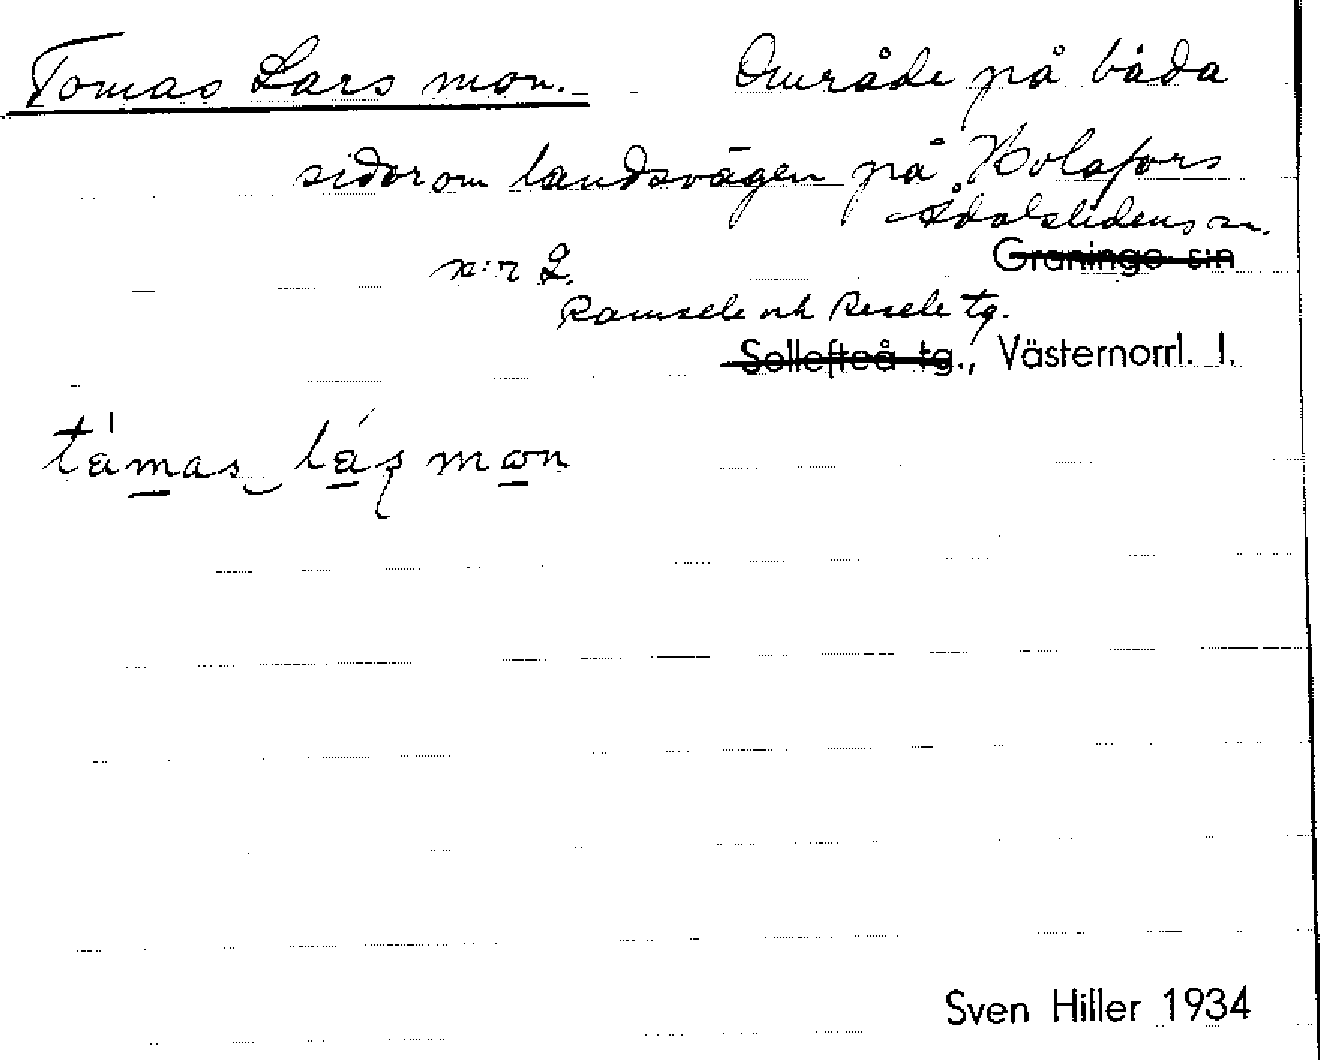 Tomas Lars mon. Område på båda
sidor om landsvägen på Holafors
Ådalslidens sn.
n:r 2. Graninge sn
Ramsele och Resele tg.
Sollefteå tg., Västernorrl. l.
támas láş mɷn
Sven Hiller 1934